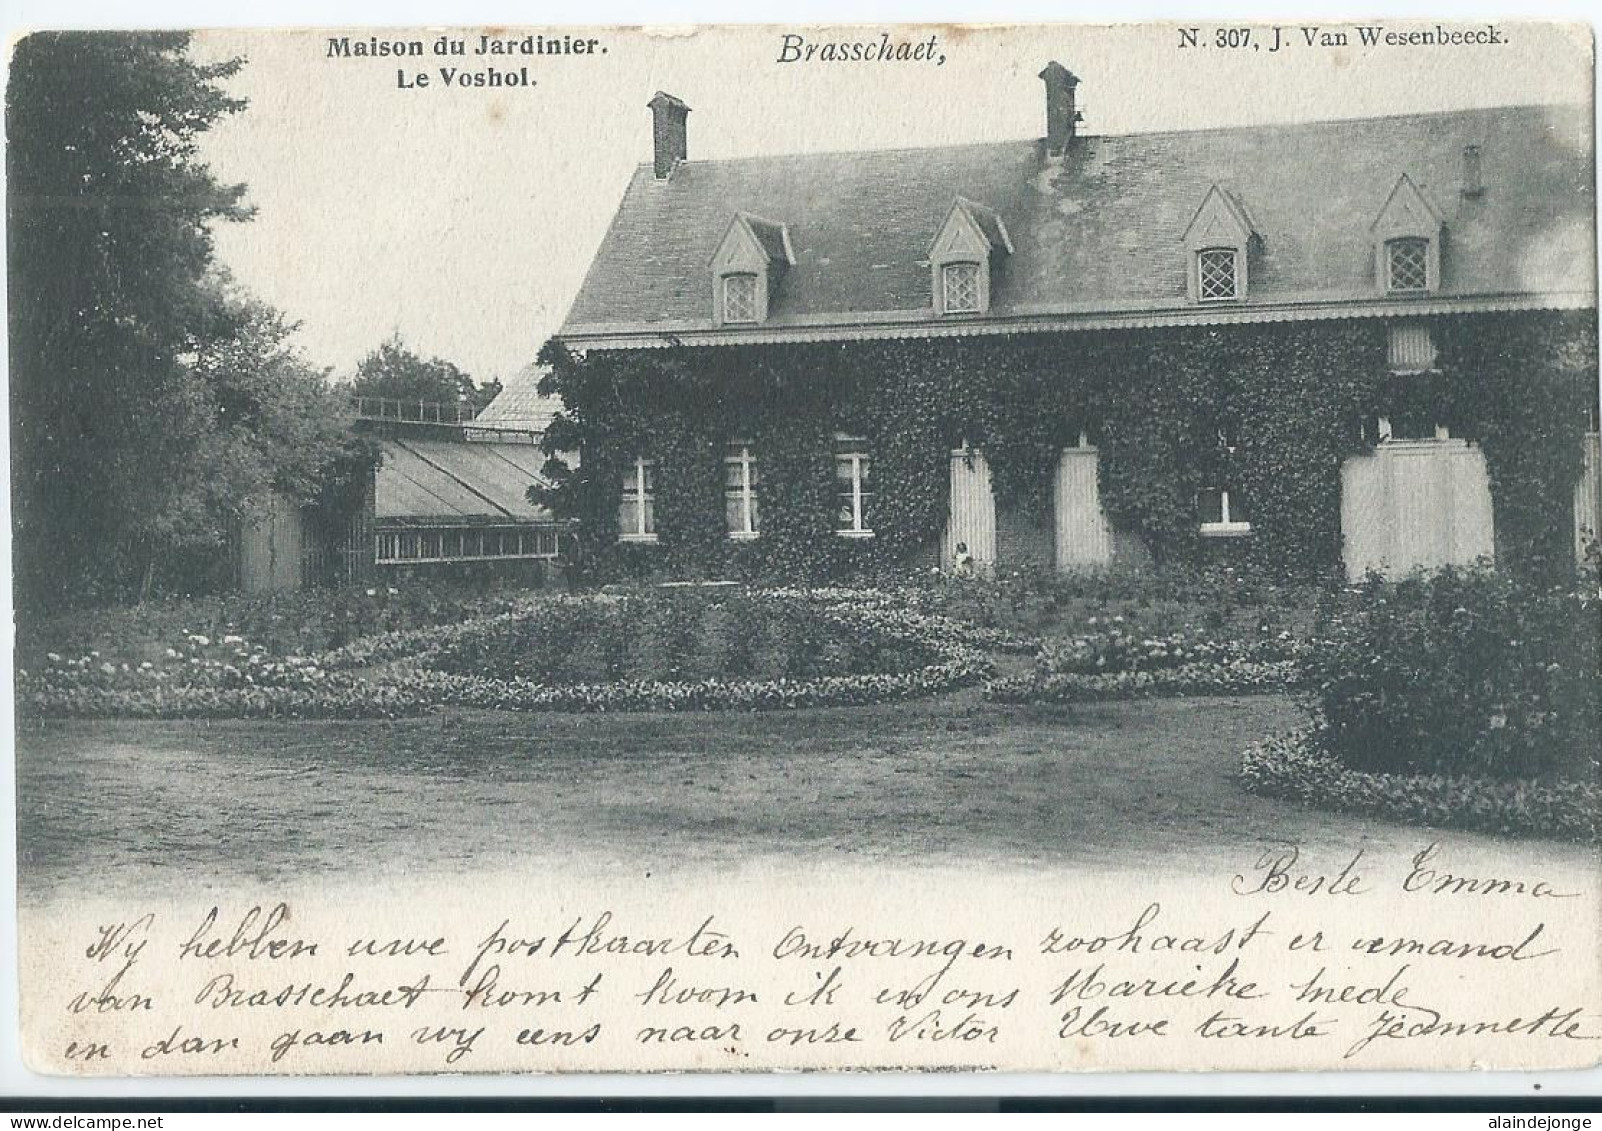 Maison du Jardinier.
Le Voshol.
Brasschaet,
N. 307, J. Van Wesenbeeck.
Beste Emma
Wy hebben uwe postkaarten Ontvangen zoohaast er iemand
van Brasschaet komt koom ik en ons Marieke mede
en dan gaan wy eens naar onze Victor Uwe tante Jeannette
alaindejonge